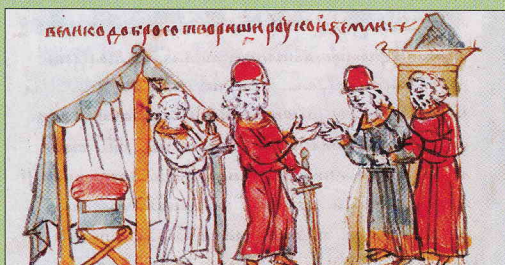 велико добро сотвориши роускои земли